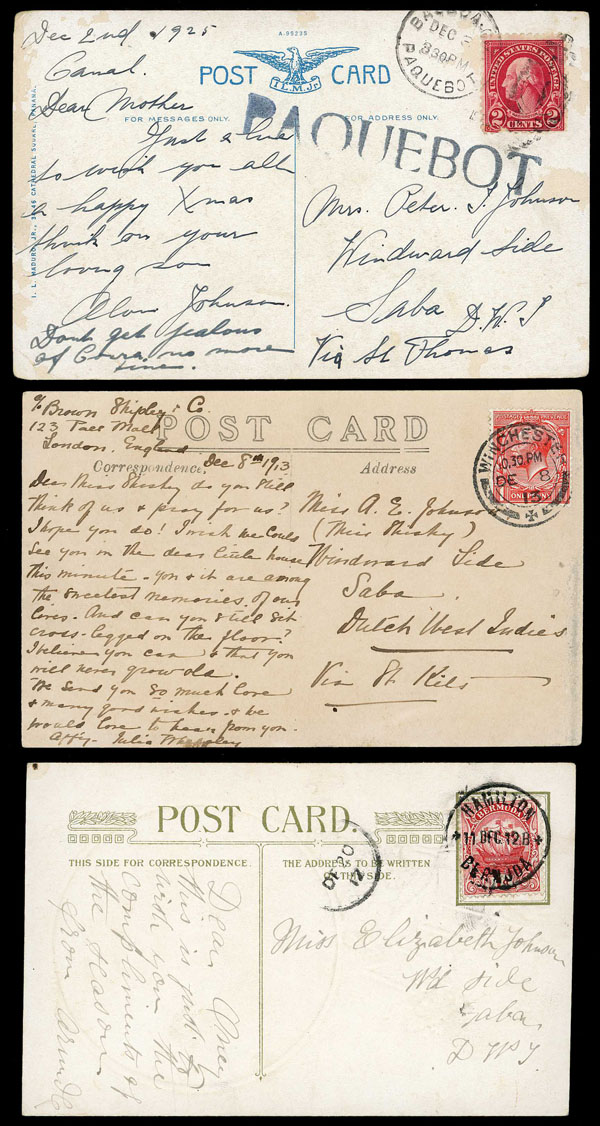 Dec 2nd 1925
Canal.
Dear Mother
Just a line
to wish you all
a happy Xmas
think on your
loving son
Johnson.
Dont get jealous
of no more
A-99235
POST CARD
I.L.M.Jr.
FOR MESSAGES ONLY.
FOR ADDRESS ONLY.
I. L. MADURO JR., CATHEDRAL SQUARE, PANAMA.
BALBOA
DEC 2
830PM
PAQUEBOT
UNITED STATES POSTAGE
2 CENTS 2
PAQUEBOT
Mrs. Peter. J. Johnson
Windward Side
Saba D.W.I
Via St Thomas
c/o Brown Shipley & Co.
123 Pall Mall
London, England
POST CARD
Correspondence
Address
Dec 8th 1913
Dear Miss Shisky do you still
think of us & pray for us?
I hope you do! I wish we could
see you in the dear little house
this minute - you & it are among
the sweetest memories of our
lives. And can you still sit
cross-legged on the floor?
I believe you can & that you
will never grow old.
We send you so much love
& many good wishes - & we
would love to hear from you.
Affy. Julia
POSTAGE REVENUE
ONE PENNY
WINCHESTER
10.30 PM
DE 8
13
Miss A. E. Johnson
(Miss Shisky)
Windward Side
Saba
Dutch West Indies
Via St Kits
POST CARD.
THIS SIDE FOR CORRESPONDENCE.
THE ADDRESS TO BE WRITTEN
THIS SIDE.
Dear
this is just to
wish you the
compliments of
the season
from
DE 20
12
BERMUDA
HAMILTON
11 DEC 12 B
BERMUDA
Miss Elizabeth Johnson
Wd Side
Saba
D W I